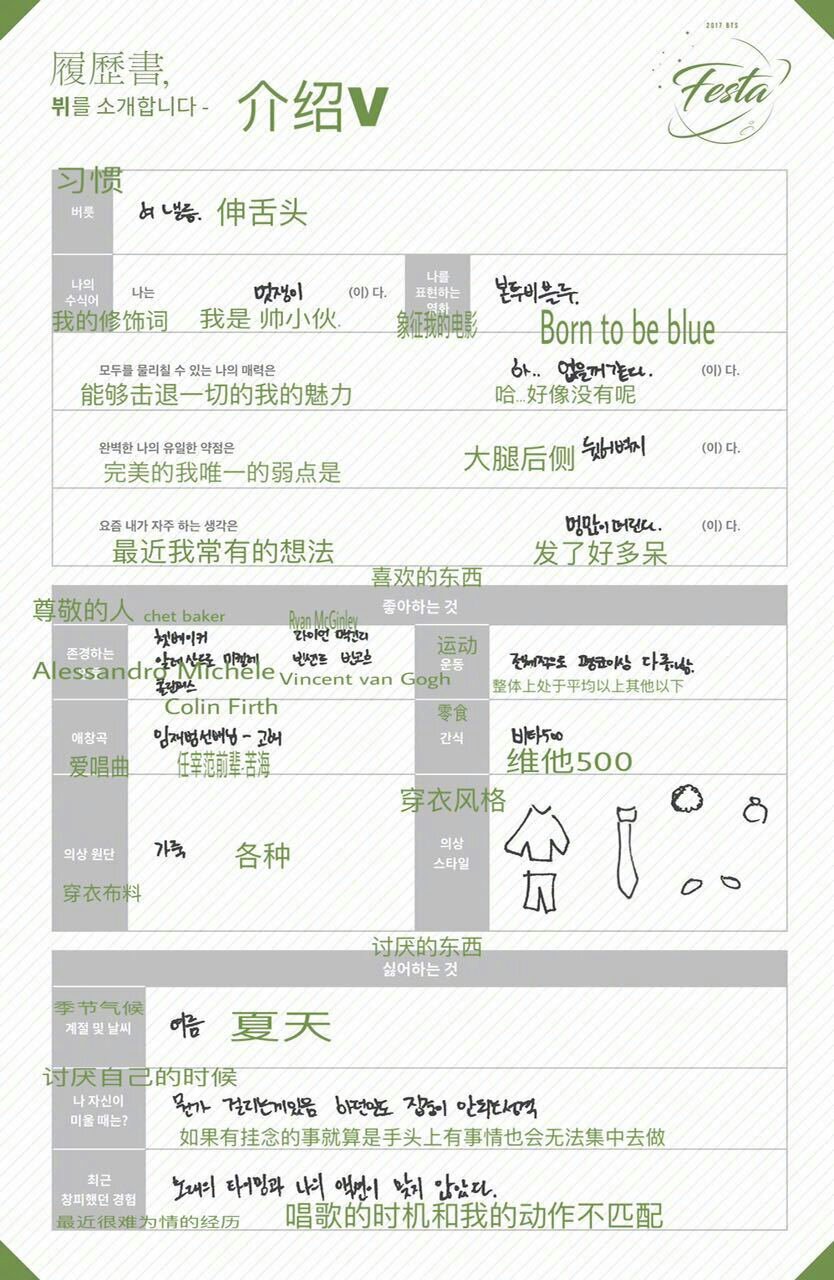 2017 BTS
Festa
履歷書,
뷔를 소개합니다 -
介绍V
习惯
버릇
혀 낼름.
伸舌头
나의
수식어
나는
멋쟁이
(이) 다.
나를
표현하는
영화
본투비블루.
我的修饰词
我是 帅小伙.
象征我的电影
Born to be blue
모두를 물리칠 수 있는 나의 매력은
하.. 없을꺼같다.
(이) 다.
能够击退一切的我的魅力
哈...好像没有呢
완벽한 나의 유일한 약점은
大腿后侧
뒷허벅지
(이) 다.
完美的我唯一的弱点是
요즘 내가 자주 하는 생각은
멍많이때린다.
(이) 다.
最近我常有的想法
发了好多呆
喜欢的东西
좋아하는 것
尊敬的人
chet baker
Ryan McGinley
존경하는
쳇베이커
라이언 맥긴리
알레산드로 미켈레
빈센트 반고흐
콜린퍼스
Alessandro Michele
Vincent van Gogh
Colin Firth
运动
운동
전체적으로 평균이상 다중이하.
整体上处于平均以上其他以下
애창곡
임재범선배님 - 고해
爱唱曲
任宰范前辈-苦海
零食
간식
비타500
维他500
의상 원단
가죽
各种
穿衣布料
穿衣风格
의상
스타일
讨厌的东西
싫어하는 것
季节气候
계절 및 날씨
여름
夏天
讨厌自己的时候
나 자신이
미울 때는?
뭔가 걸리는게있음 하던일도 집중이 안되는성격
如果有挂念的事就算是手头上有事情也会无法集中去做
최근
창피했던 경험
노래의 타이밍과 나의 액션이 맞지 않았다.
最近很难为情的经历
唱歌的时机和我的动作不匹配